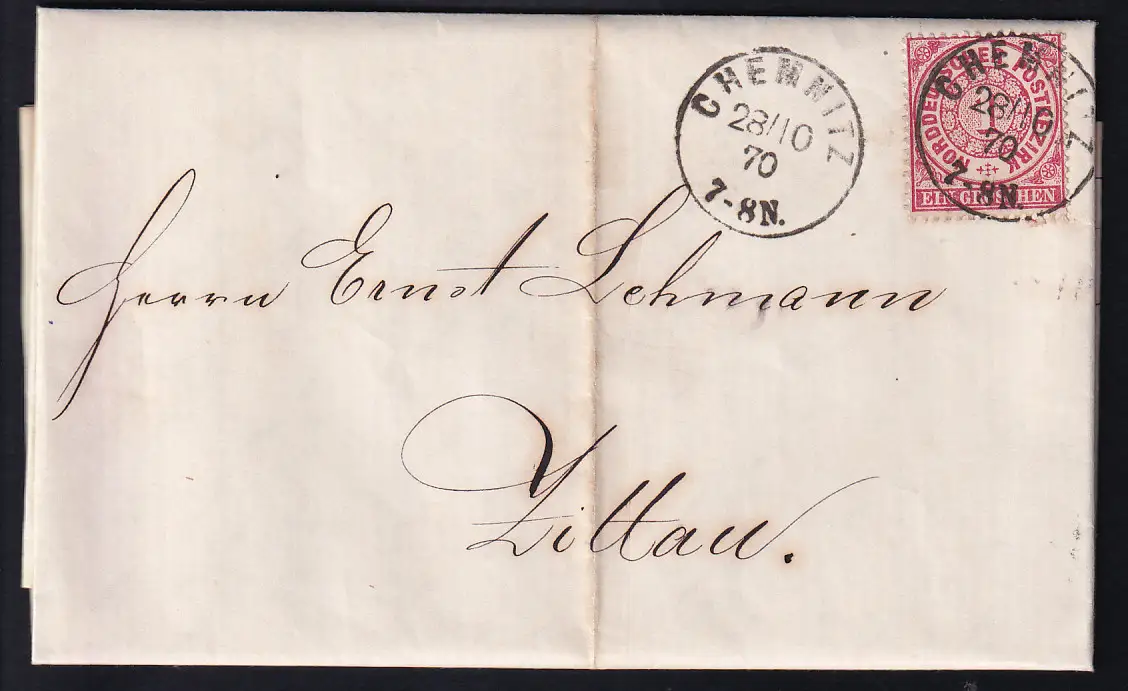 CHEMNITZ
28/10
70
7-8N.
NORDDEUTSCHER POSTBEZIRK
1
EIN GROSCHEN
CHEMNITZ
28/10
70
7-8N.
Herrn Ernst Lehmann
Zittau.